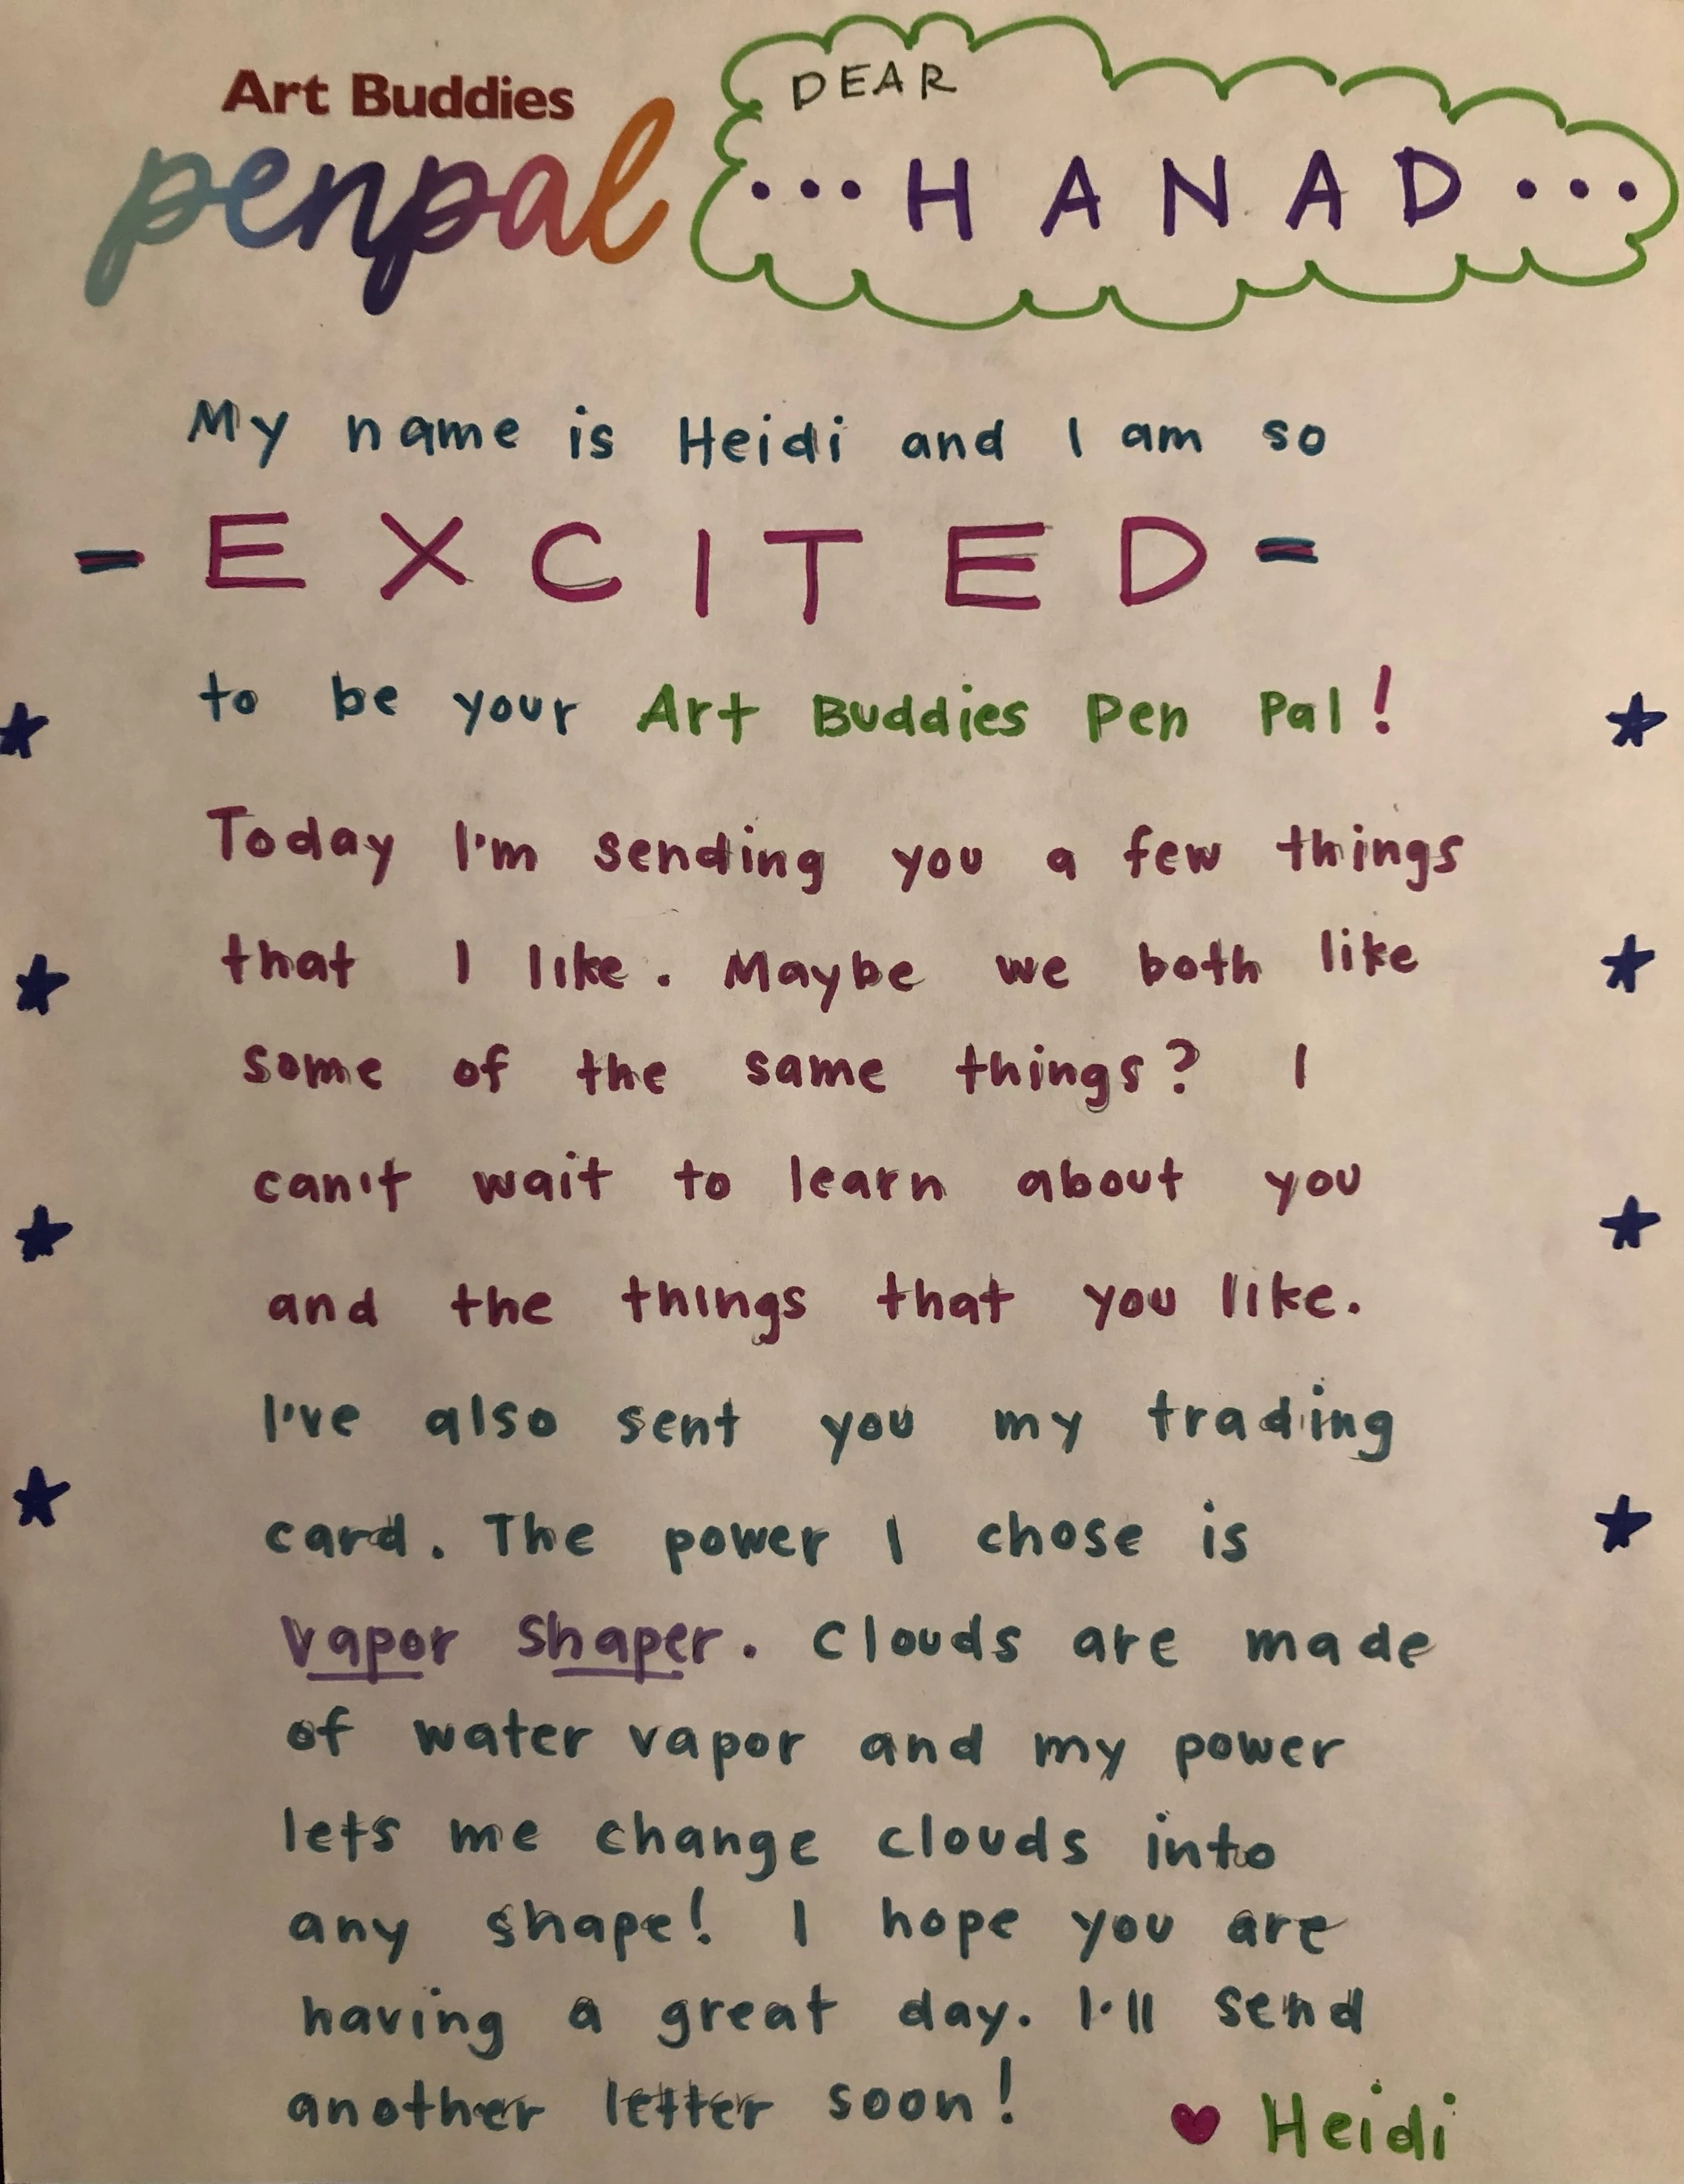 Art Buddies
penpal
DEAR
...HANAD...
My name is Heidi and I am so
-EXCITED-
to be your Art Buddies Pen Pal!
Today I'm sending you a few things
that I like. Maybe we both like
some of the same things? I
can't wait to learn about you
and the things that you like.
I've also sent you my trading
card. The power I chose is
Vapor Shaper. Clouds are made
of water vapor and my power
lets me change clouds into
any shape! I hope you are
having a great day. I'll send
another letter soon!
♥ Heidi